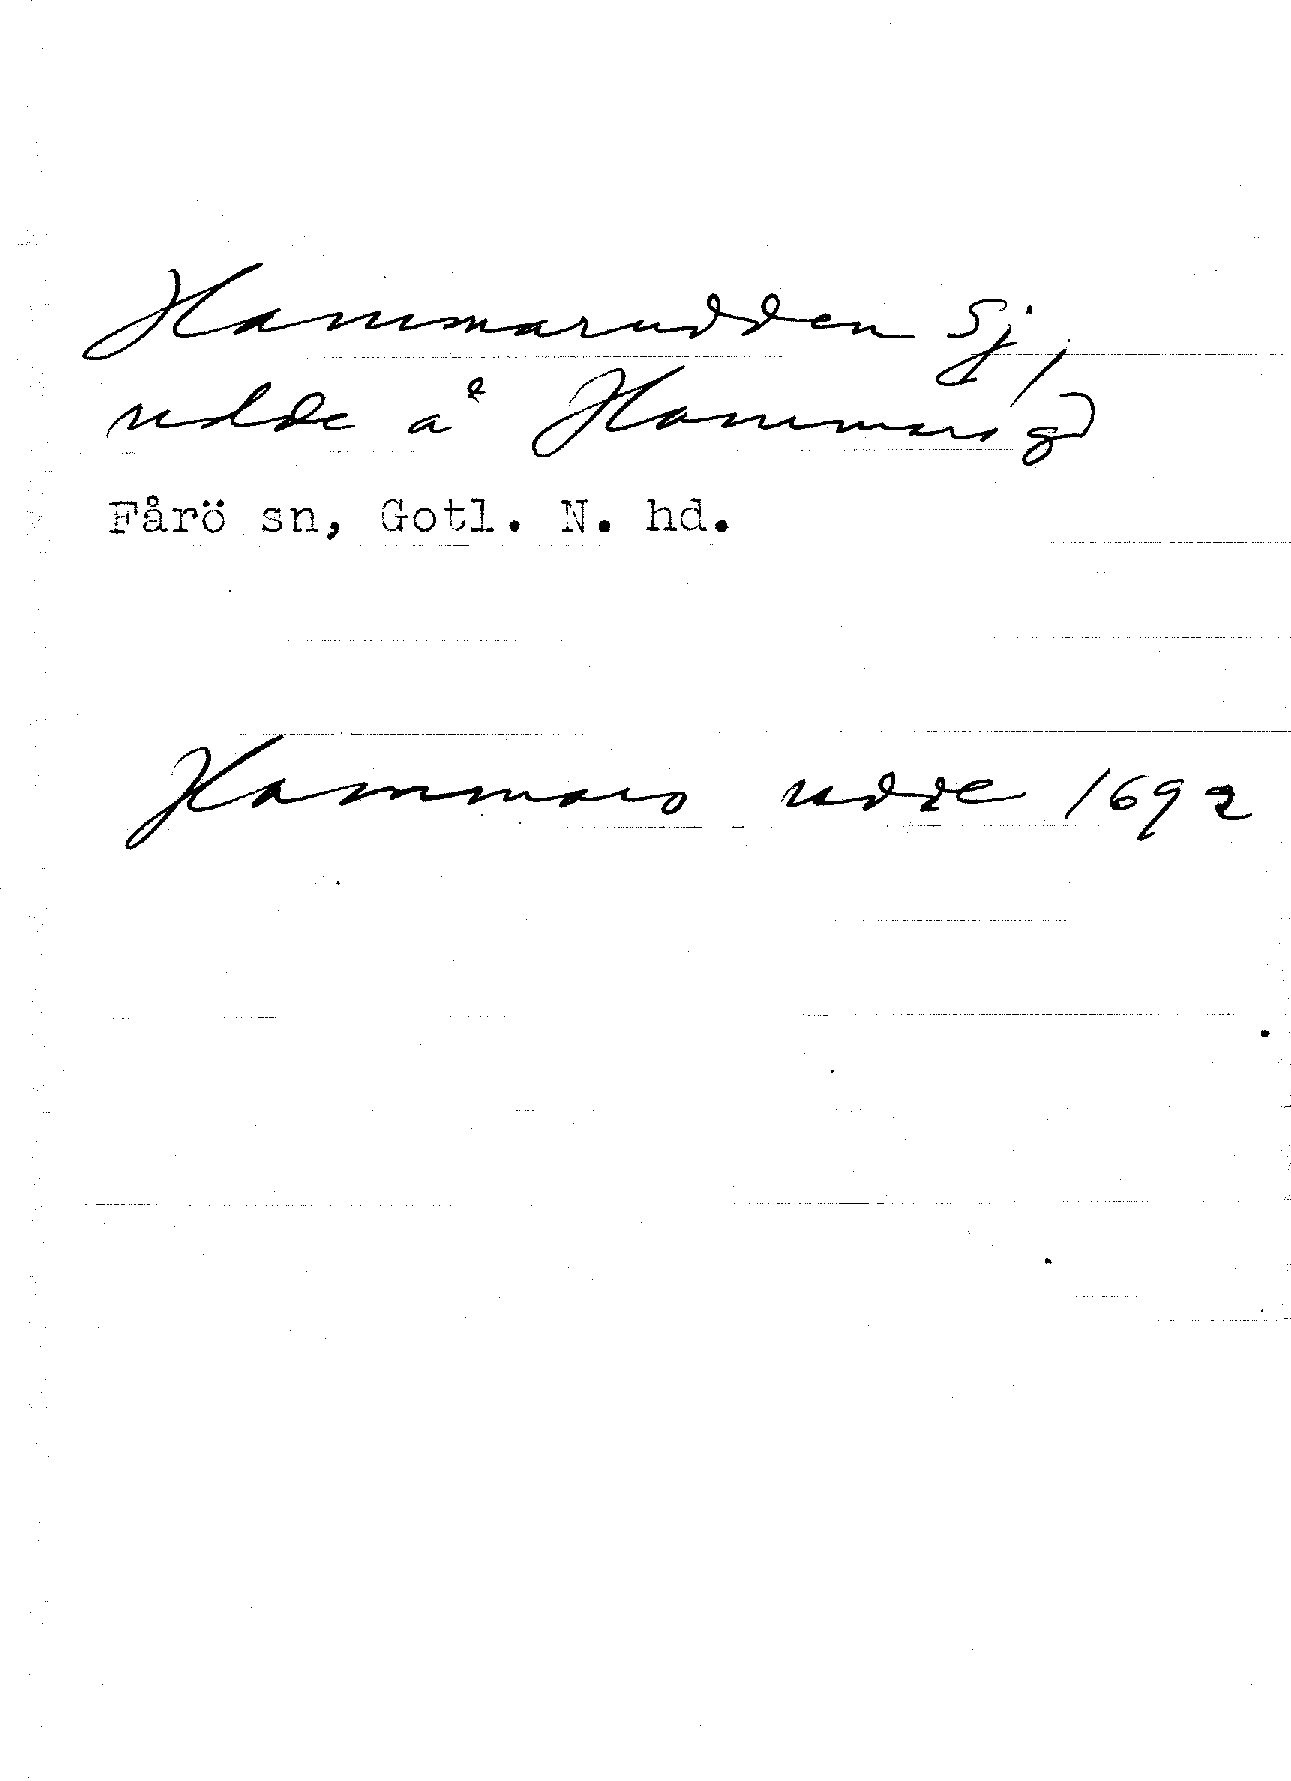 Hammarudden Sj,
udde å Hammars gd
Fårö sn, Gotl. N. hd.
Hammars udde 1692